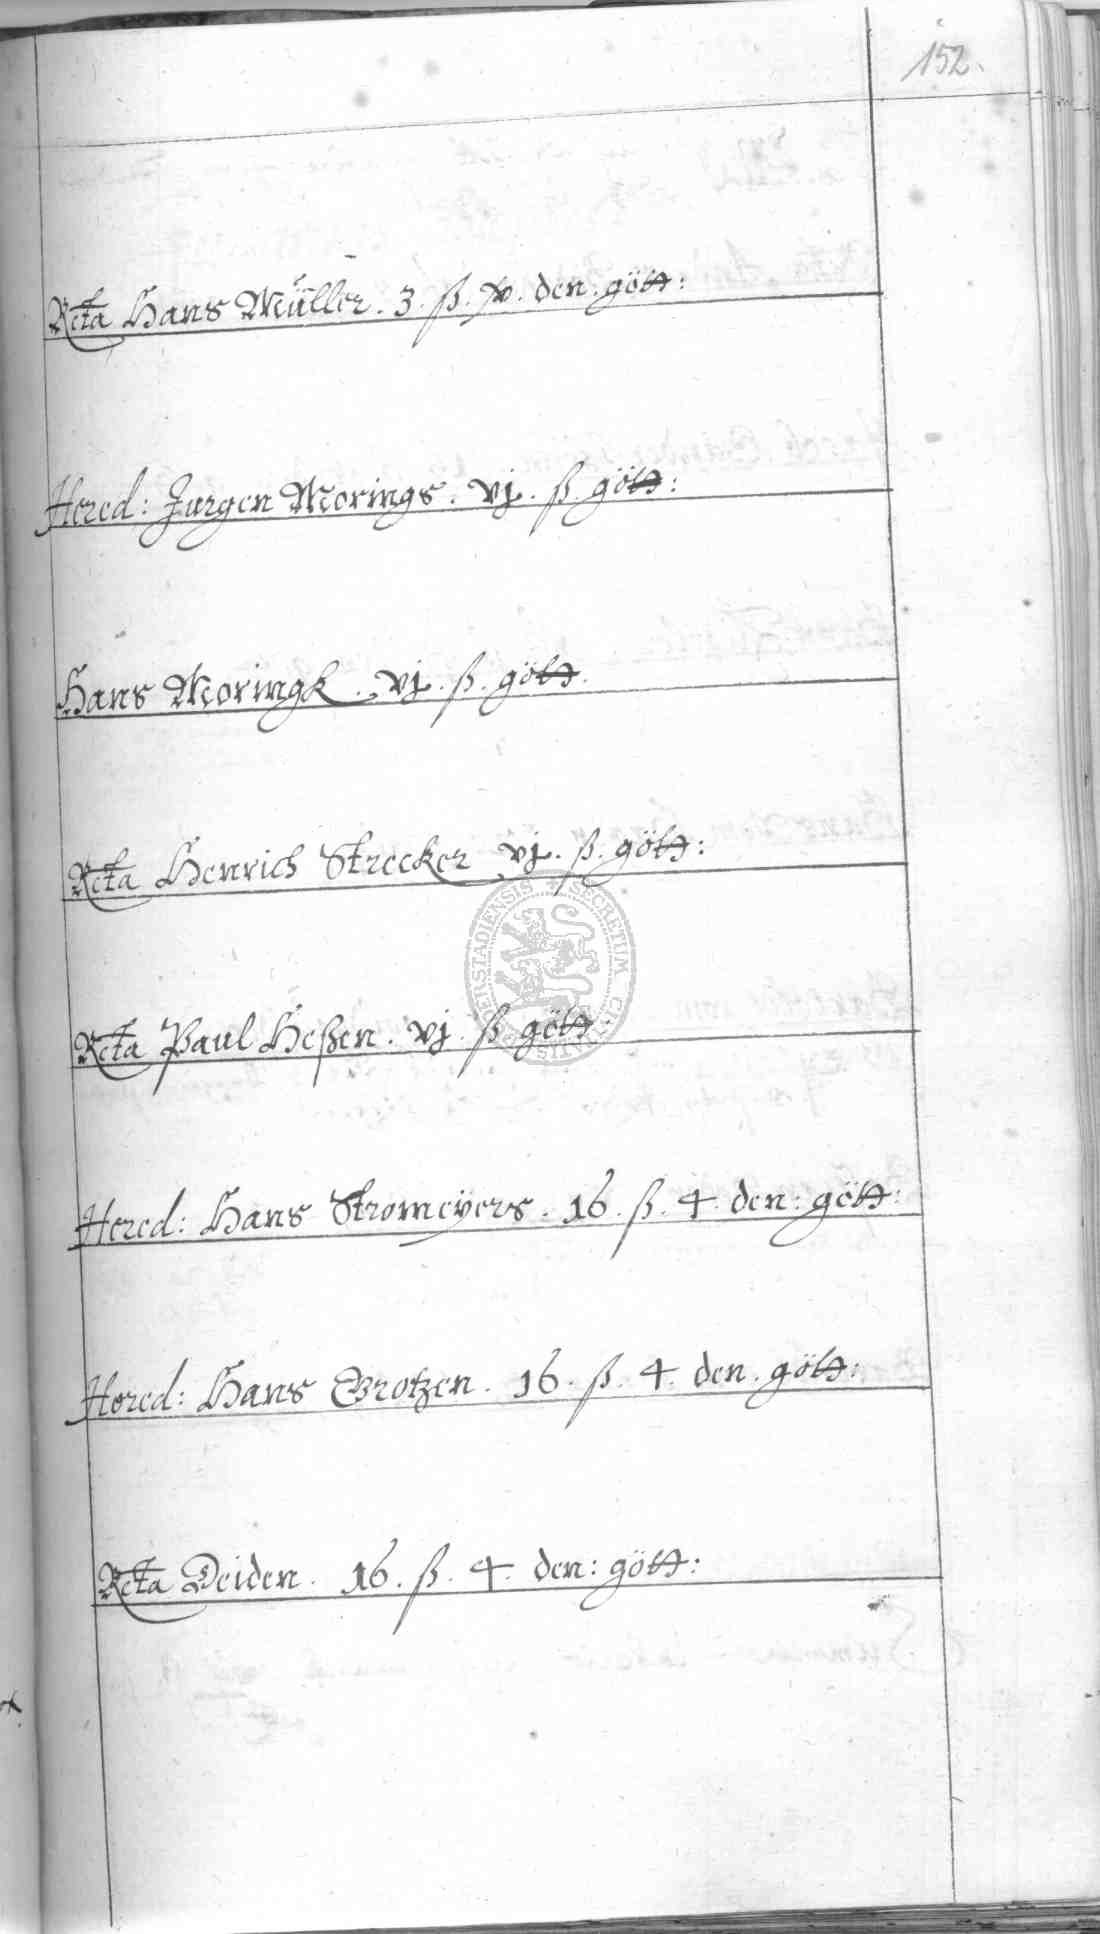 152.
Rcta Hans Müller. 3. ß. iv. den. gött:
Hered: Jurgen Morings. vj. ß. gött:
Hans Moringk. vj. ß. gött.
Rcta Henrich Strecker vj. ß. gött:
Rcta Paul Heßen. vj. ß gött:
Hered: Hans Stromeÿers. 16. ß. 4. den: gött:
Hered: Hans Grotzen. 16. ß. 4. den. gött:
Rcta Deiden. 16. ß. 4. den: gött:
SECRETUM